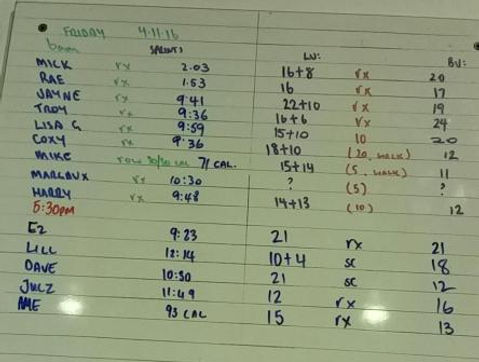 FRIDAY 4.11.16
6am SPRINTS LW: BW:
MICK rx 2.03 16+8 rx 20
RAE rx 1.53 16 rx 17
JAYNE rx 9:41 22+10 rx 19
TROY rx 9:36 16+6 rx 24
LISA G rx 9:59 15+10 10 20
COXY rx 9:36 18+10 (20, WALK) 12
MIKE row 30/30 CAL 71 CAL. 15+14 (5, WALK) 11
MARGAUX rx 10:30 ? (5) ?
HARRY rx 9:48 14+13 (10) 12
5:30pm
EZ 9:23 21 rx 21
LILL 12:14 10+4 sc 18
DAVE 10:50 21 sc 12
JULZ 11:49 12 rx 16
93 CAL 15 rx 13